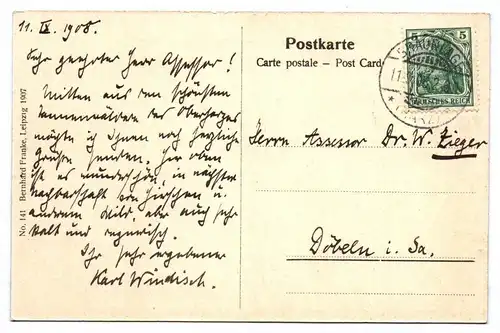 11. IX. 1908.
Sehr geehrter Herr Assessor!
Mitten aus den schönsten
Tannenwäldern des Oberharzes
möchte ich Ihnen noch herzliche
Grüße senden. Hier oben
ist es wunderschön in nächster
Nachbarschaft von Hirschen u.
anderem Wild, aber auch sehr
kalt und regnerisch.
Ihr sehr ergebener
Karl Windisch.
No. 141 Bernhard Franke, Leipzig 1907
Postkarte
Carte postale – Post Card
5 5
DEUTSCHES REICH
BRAUNLAGE
11.
Herrn Assessor Dr. W. Zieger
Döbeln i. Sa.